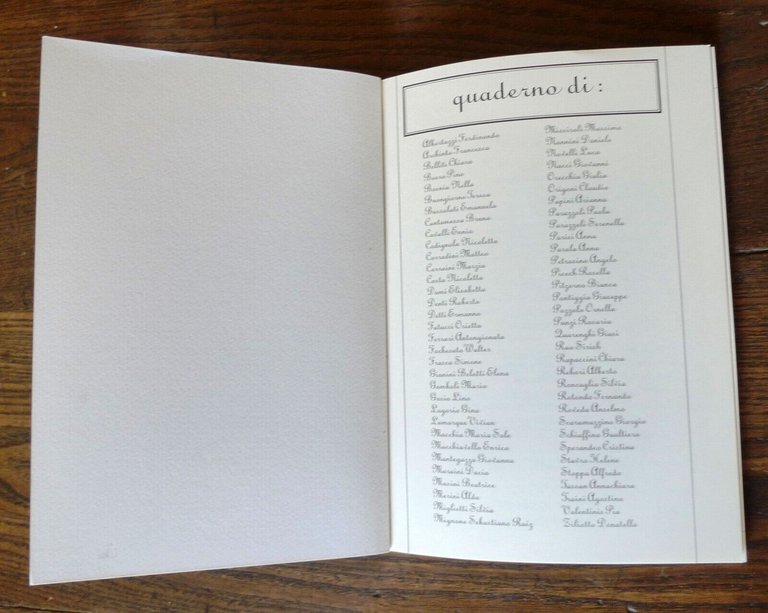 quaderno di :
Albertazzi Ferdinando
Archinto Francesca
Bellili Chiara
Boero Pino
Bosnia Nella
Buongiorno Teresa
Bussolati Emanuela
Cantamessa Bruno
Cavalli Ennio
Codignola Nicoletta
Corradini Matteo
Corraini Marzia
Costa Nicoletta
Dami Elisabetta
Denti Roberto
Detti Ermanno
Fatucci Orietta
Ferrari Antongionata
Fochesato Walter
Frasca Simone
Gianini Belotti Elena
Gomboli Mario
Gozio Lina
Lagorio Gina
Lamarque Vivian
Macchia Maria Sole
Macchiavello Enrico
Mantegazza Giovanna
Maraini Dacia
Masini Beatrice
Merini Alda
Miglietti Silvia
Mignone Sebastiano Ruiz
Missiroli Massimo
Nannini Daniele
Novelli Luca
Nucci Giovanni
Orecchia Giulia
Origoni Claudia
Papini Arianna
Parazzoli Paola
Parazzoli Serenella
Parisi Anna
Parola Anna
Petrosino Angelo
Piceck Rosella
Pitzorno Bianca
Pontiggia Giuseppe
Pozzolo Ornella
Punzi Rosaria
Quarenghi Giusi
Rao Sirish
Rapaccini Chiara
Rebori Alberto
Roncaglia Silvia
Rotondo Fernando
Roveda Anselmo
Scaramuzzino Giorgio
Schiaffino Gualtiero
Sperandeo Cristina
Stavro Helene
Stoppa Alfredo
Tassan Annachiara
Traini Agostino
Valentinis Pia
Ziliotto Donatella